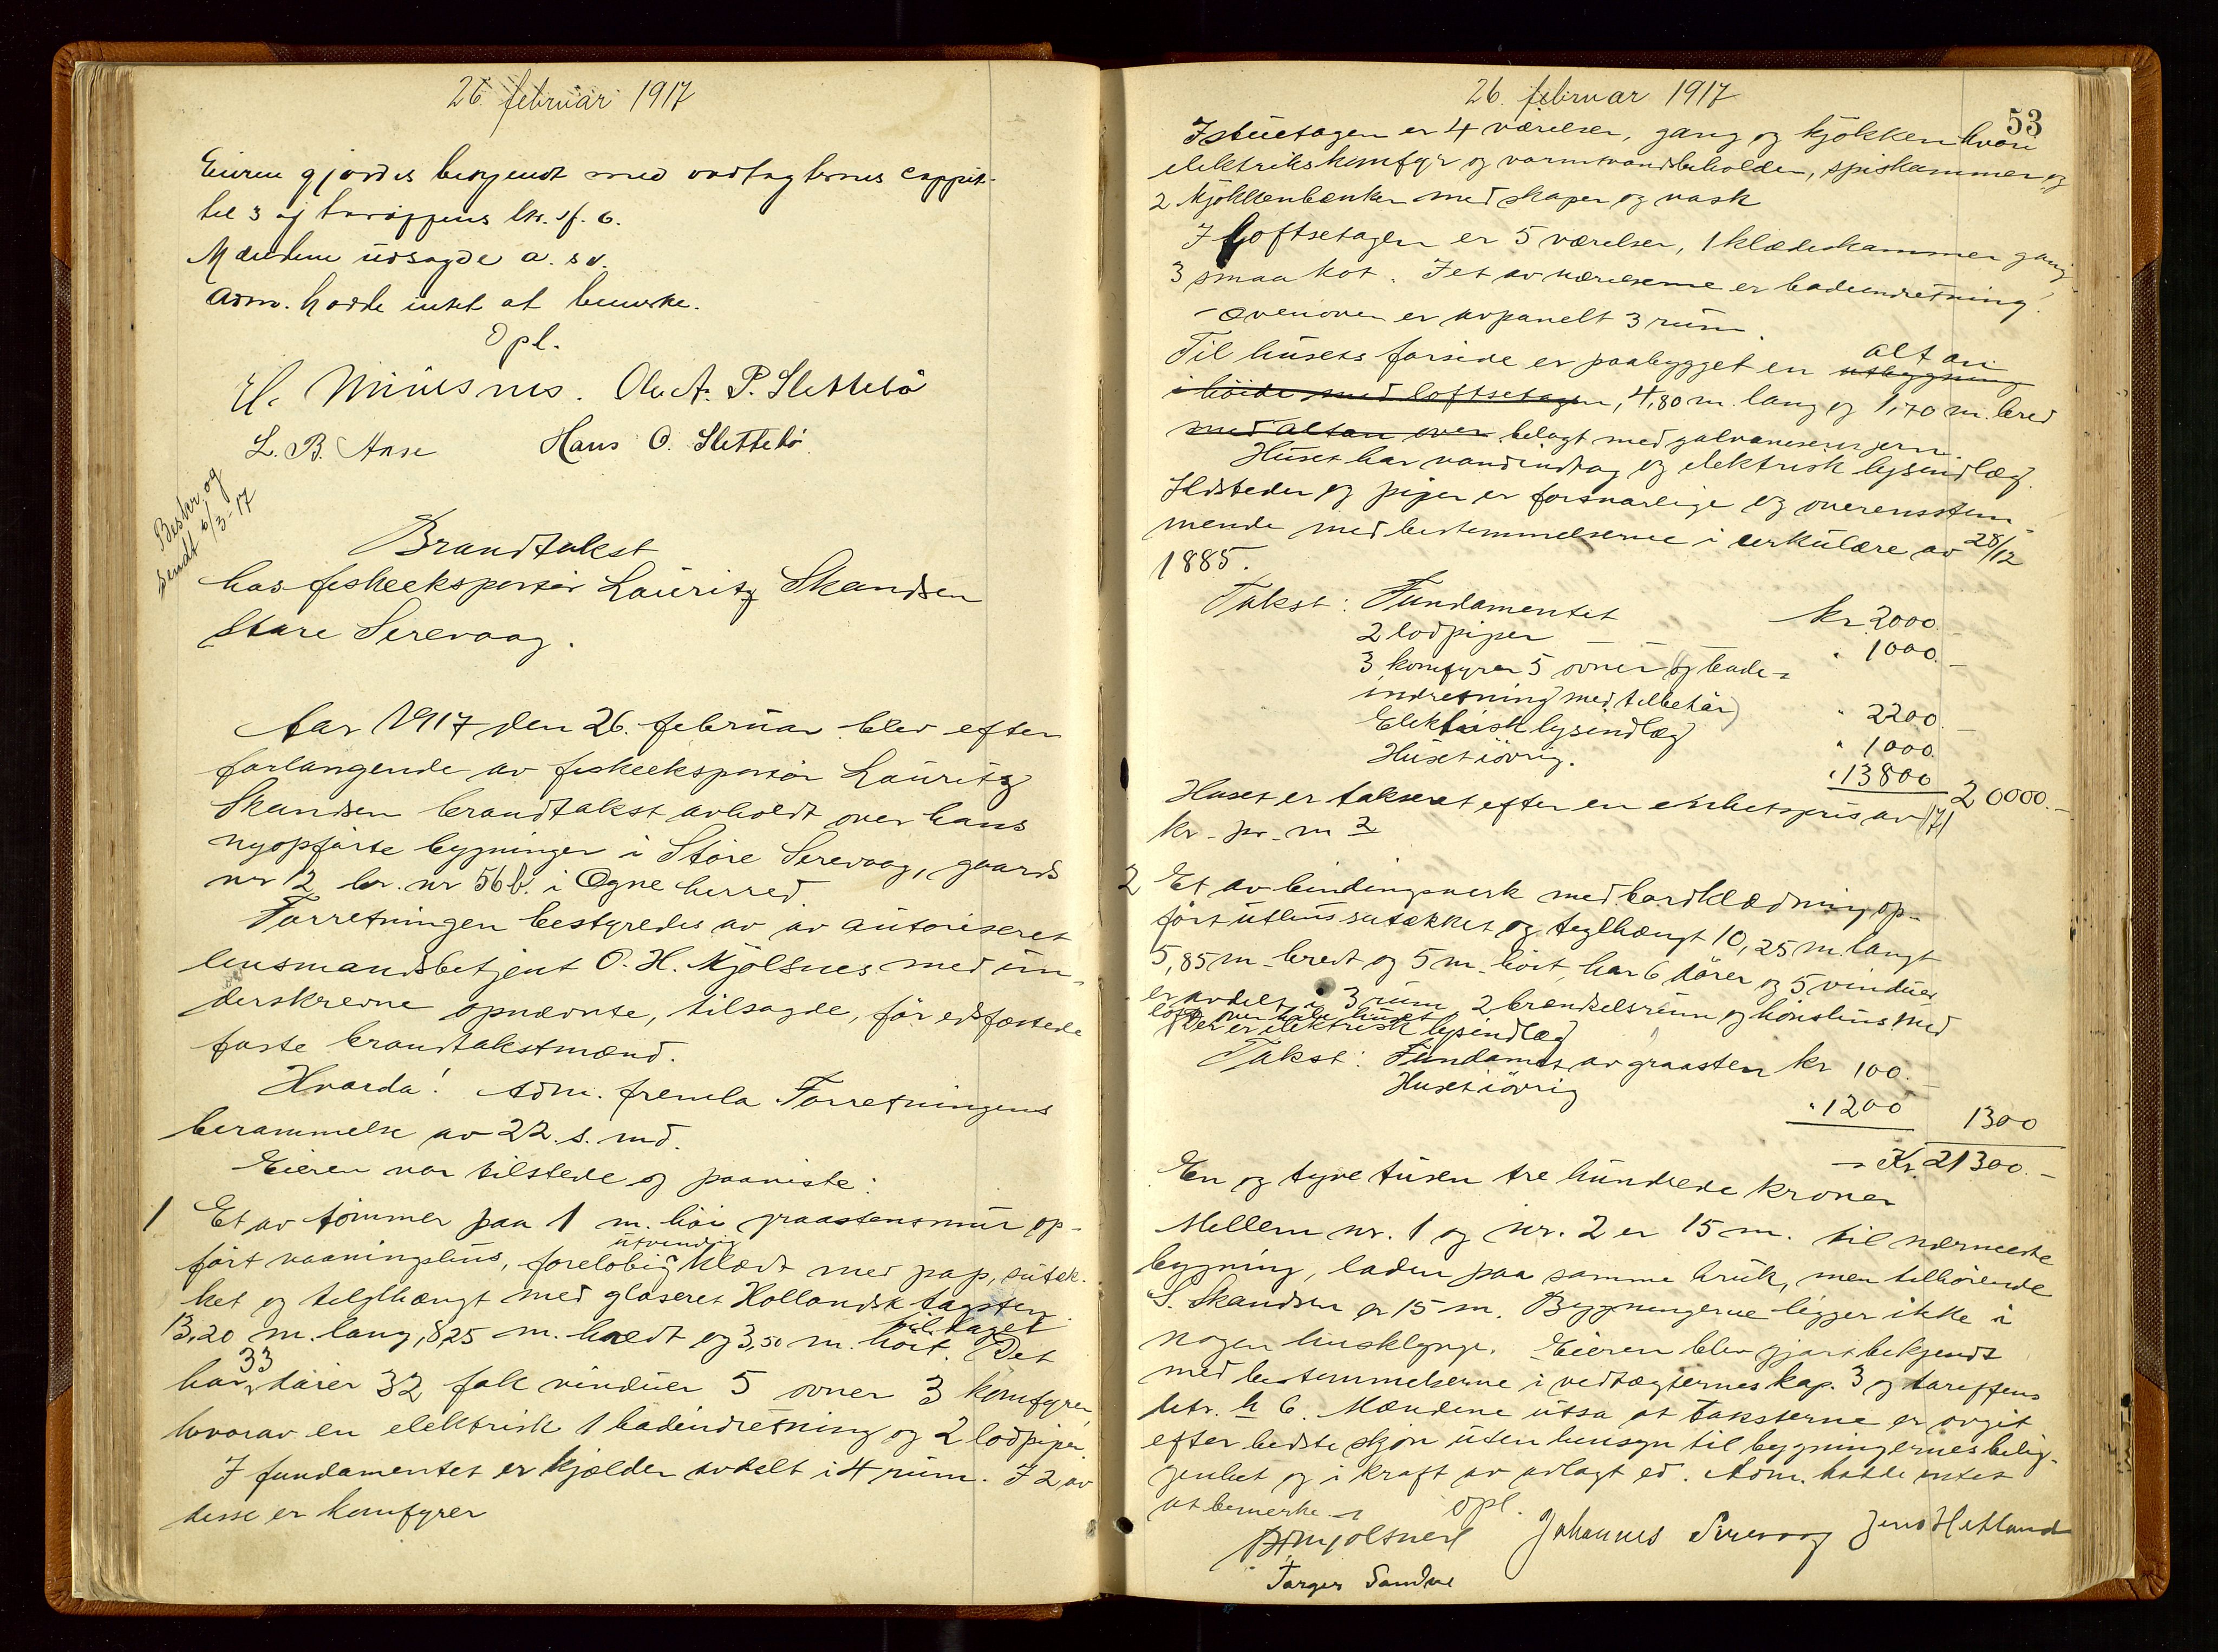 26. februar 1917
Eieren gjordes bekjendt med vedtægternes cappit-
tel 3 og tariffens litr. f. 6.
Mændene utsagde a. sv.
Adm. hadde intet at bemerke.
Opl.
Ole A. P. Slettebö
L. B. Aase Hans O. Slettebö
Beskr. og
sendt 6/3-17
Brandtakst
hos fiskeeksportör Lauritz Skandsen
Store Sirevaag.
Aar 1917 den 26. februar blev efter
forlangende av fiskeeksportör Lauritz
Skandsen brandtakst avholdt over hans
nyopförte bygninger i Store Sirevaag, gaards
nr 12 br. nr 56 b. i Ogne herred.
Forretningen bestyredes av av autoriseret
lensmandsbetjent O. H. Mjölsnes med un-
derskrevne opnævnte, tilsagde, för edfæstede
faste brandtakstmænd.
Hvorda! Adm. fremla Forretningens
berammelse av 22. s. md.
Eieren var tilstede og paaviste:
1 Et av tömmer paa 1 m. höi graastensmur op-
fört vaaningshus, forelöbig utvendig klædt med pap, sutæk-
ket og teglhængt med glaseret Hollandsk tagsten
13,20 m. lang, 8,25 m. bredt og 3,50 m. höit til taget. Det
har 33 dörer 32 fak vinduer 5 ovner 3 komfyrer
hvorav en elektrisk 1 badeindretning og 2 lodpiper
I fundamentet er kjælder avdelt i 4 rum. I 2 av
disse er komfyrer
26. februar 1917
53
I stuetagen er 4 værelser, gang og kjökken hvori
elektrisk komfyr og varmtvandsbeholder, spiskammer og
2 kjökkenbænker med skaper og vask
I loftsetagen er 5 værelser, 1 klædeskammer gang
3 smaa kot. I et av værelserne er badeindretning.
- Ovenover er avpanelt 3 rum.
Til husets forside er paabygget en utbygning altan
i höide med loftsetagen, 4,80 m. lang og 1,70 m. bred
med altan over belagt med galvaniseret jern.
Huset har vandindtag og elektrisk lysindlæg.
Ildsteder og piper er forsvarlige og overensstem-
mende med bestemmelserne i cirkulære av 28/12
1885.
Takst: Fundamentet kr 2000.-
2 lodpiper " 1000.-
3 komfyrer 5 ovner (og bade-
indretning med tilbehör) " 2200.-
Elektrisk lysindlæg " 1000.
Huset iövrig. " 13800 20000.-
Huset er takseret efter en enhetspris av 171
kr. pr. m 2
2 Et av bindingsverk med bordklædning op-
fört uthus sutækket og teglhængt 10,25 m. langt
5,85 m. bredt og 5 m. höit, har 6 dörer og 5 vinduer
er avdelt i 3 rum, 2 brændselsrum og hönsehus med
loft over hele huset
Der er elektrisk lysindlæg
Takst: Fundamet av graasten kr 100.-
Huset iövrig " 1200 1300
Kr 21300.-
En og tyve tusen tre hundrede kroner
Mellem nr. 1 og nr. 2 er 15 m. til nærmeste
bygning, laden paa samme bruk, men tilhörende
S. Skandsen er 15 m. Bygningerne ligger ikke i
nogen husklynge. Eieren blev gjort bekjendt
med bestemmelserne i vedtægternes kap. 3 og tariffens
litr. h 6. Mændene utsa at taksterne er avgit
efter bedste skjön uten hensyn til bygningernes belig-
genhet og i kraft av avlagt ed. Adm. hadde intet
at bemerke
Opl.
O H Mjölsnes Johannes Sirevaag Jens Hetland
Torger Sandve